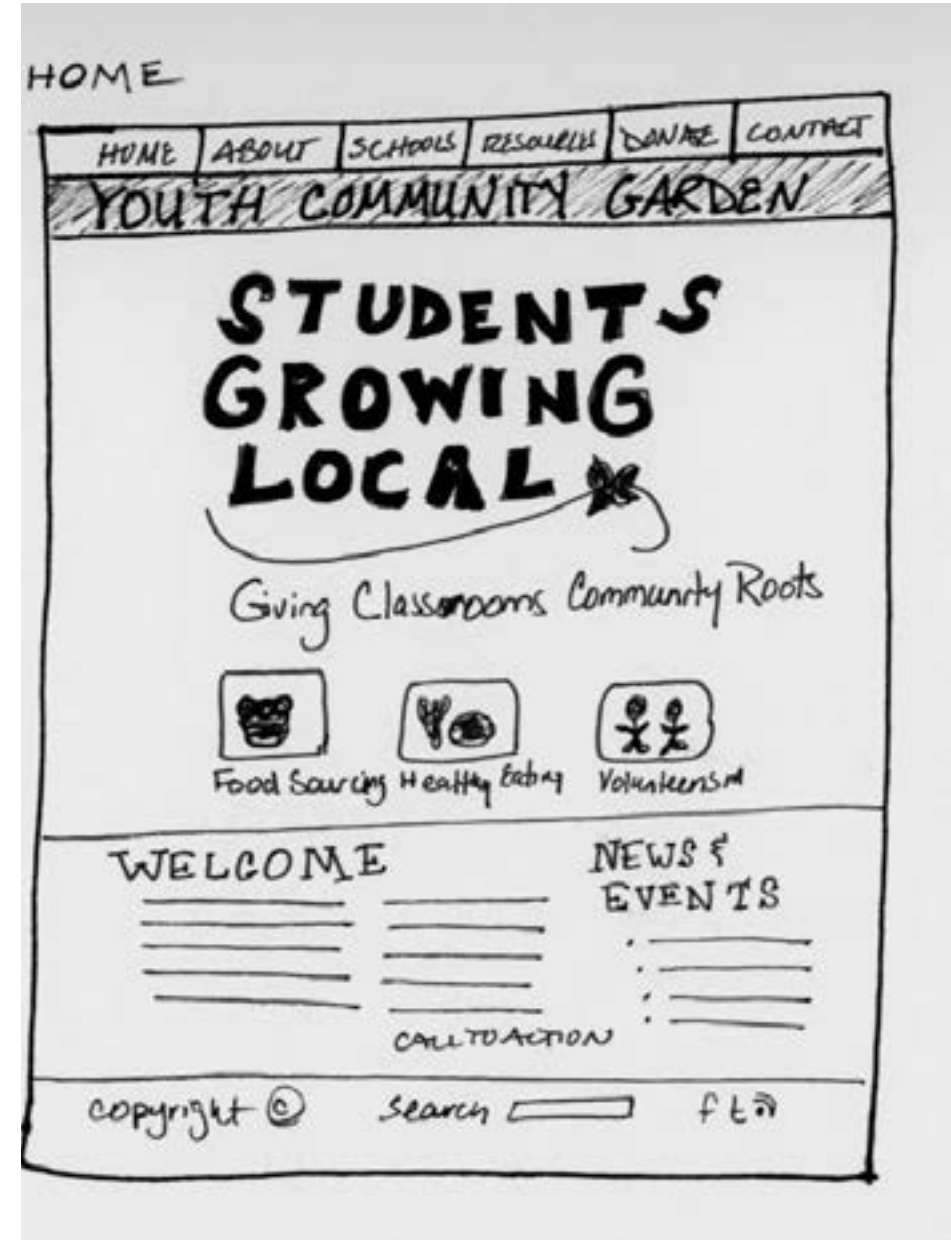 HOME
HOME ABOUT SCHOOLS RESOURCES DONATE CONTACT
YOUTH COMMUNITY GARDEN
STUDENTS
GROWING
LOCAL
Giving Classrooms Community Roots
Food Sourcing Healthy Eating Volunteerism
WELCOME
NEWS &
EVENTS
CALL TO ACTION
copyright © search f t